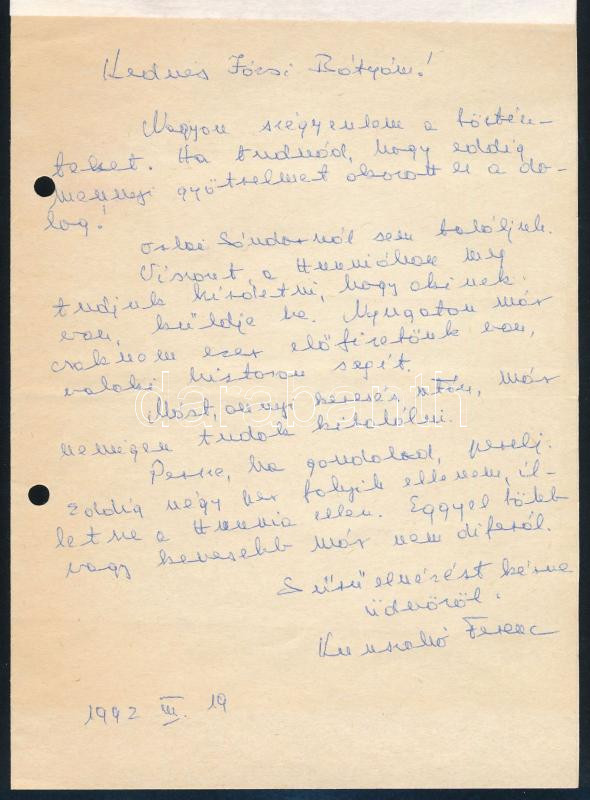 Kedves Józsi Bátyám!
Nagyon szégyenlem a történ-
teket. Ha tudnád, hogy eddig
mennyi gyötrelmet okozott ez a do-
log!
Sándornál sem találjuk.
Viszont a Hunniában meg
tudjuk hirdetni, hogy akinek
van, küldje be. Nyugaton már
csaknem ezer előfizetőnk van,
valaki biztosan segít.
Mást, annyi keresés után, már
nemigen tudok kitalálni.
Persze, ha gondolod, perelj.
Eddig négy per folyik ellenem, il-
letve a Hunnia ellen. Eggyel több
vagy kevesebb már nem diferál.
Sűrű elnézést kérve
üdvözöl:
Kunszabó Ferenc
1992 III. 19
darabanth